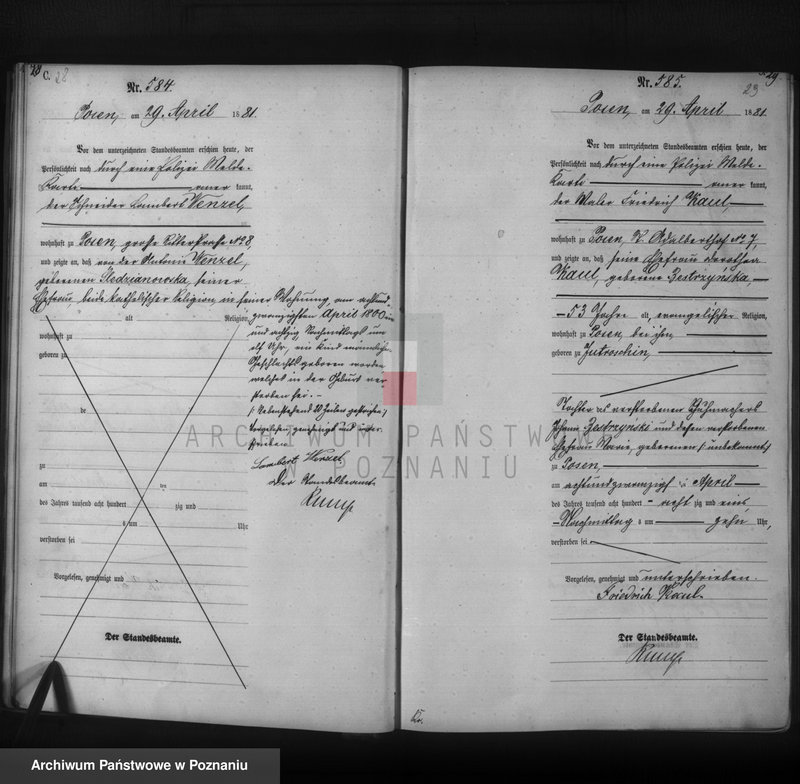 28
C. 28
Nr. 584.
Posen, am 29. April 1881.
Vor dem unterzeichneten Standesbeamten erschien heute, der
Persönlichkeit nach durch eine Polizei Melde-
Karte kannt,
der Schneider Lambert Wenzel,
wohnhaft zu Posen, große Ritterstraße No 8,
und zeigte an, daß von der Antonie Wenzel,
geborenen Sledzianowska, seiner
Ehefrau beide katholischer Religion, in seiner Wohnung, am achtund-
alt Religion,
wohnhaft zu
geboren zu
de
zu
am ten
des Jahres tausend acht hundert zig und
um Uhr
verstorben sei
Vorgelesen, genehmigt und
Der Standesbeamte.
zwanzigsten April 1800
und achtzig Nachmittags um
elf Uhr, ein Kind männlichen
Geschlechts geboren worden
welches in der Geburt ver-
storben sei. -
(Nebenstehend 20 Zeilen gestrichen)
Vorgelesen, genehmigt und unter-
schrieben.
Lambert Wenzel
Der Standesbeamte
Nr. 585.
29
Posen, am 29. April 1881.
Vor dem unterzeichneten Standesbeamten erschien heute, der
Persönlichkeit nach durch eine Polizei Melde-
Karte kannt,
der Maler Friedrich Kaul,
wohnhaft zu Posen, St. Adalberthof No 7,
und zeigte an, daß seine Ehefrau Dorothea
Kaul, geborene Zestrzyńska,
- 53 Jahre alt, evangelischer Religion,
wohnhaft zu Posen, bei ihm,
geboren zu Jutroschin,
Tochter des verstorbenen Schuhmachers
Zestrzynski und dessen verstorbenen
Ehefrau Marie, geborenen (unbekannt)
zu Posen,
am achtundzwanzigsten April
des Jahres tausend acht hundert acht zig und eins
Nachmittag um zehn Uhr,
verstorben sei
Vorgelesen, genehmigt und unterschrieben.
Friedrich Kaul
Der Standesbeamte.
ARCHIWUM PAŃSTWOWE
W POZNANIU
Archiwum Państwowe w Poznaniu